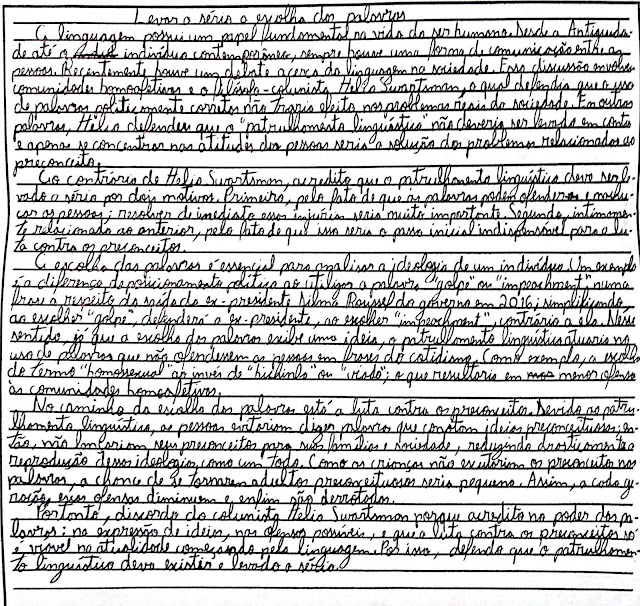 Levar a sério a escolha das palavras
A linguagem possui um papel fundamental na vida do ser humano. Desde a Antiguida-
de até o indivíduo contemporâneo, sempre houve uma forma de comunicação entre as
pessoas. Recentemente houve um debate acerca da linguagem na sociedade. Essa discussão envolveu
comunidades homoafetivas e o filósofo-colunista Hélio Swartsman, o qual defendia que o uso
de palavras politicamente corretas não traria efeito nos problemas reais da sociedade. Em outras
palavras, Hélio defendeu que o "patrulhamento linguístico" não deveria ser levado em conta
e apenas se concentrar nas atitudes das pessoas seria a solução dos problemas relacionados ao
preconceito.
Ao contrário de Helio Swartsman, acredito que o patrulhamento linguístico deve ser le-
vado a sério por dois motivos. Primeiro, pelo fato de que as palavras podem ofender e machu-
car as pessoas; resolver de imediato essas injúrias seria muito importante. Segundo, intimamen-
te relacionado ao anterior, pelo fato de que isso seria o passo inicial indispensável para a lu-
ta contra os preconceitos.
A escolha das palavras é essencial para analisar a ideologia de um indivíduo. Um exemplo
é a diferença de posicionamento político ao utilizar a palavra "golpe" ou "impeachment" numa
frase a respeito da saída da ex-presidente Dilma Roussef do governo em 2016; simplificando,
ao escolher "golpe", defenderá a ex-presidente, ao escolher "impeachment", contrário a ela. Nesse
sentido, já que a escolha das palavras exibe uma ideia, o patrulhamento linguístico atuaria no
uso de palavras que não ofendessem as pessoas em frases do cotidiano. Como exemplo, a escolha
do termo "homossexual" ao invés de "bichinha" ou "viado"; o que resultaria em menor ofensa
às comunidades homoafetivas.
No caminho da escolha das palavras está a luta contra os preconceitos. Devido ao patru-
lhamento linguístico, as pessoas evitariam dizer palavras que conotam ideias preconceituosas; en-
tão, não lançariam seus preconceitos para suas famílias e sociedade, reduzindo drasticamente a
reprodução dessa ideologia como um todo. Como as crianças não escutariam os preconceitos nas
palavras, a chance de se tornarem adultos preconceituosos seria pequena. Assim, a cada ge-
ração, essas ofensas diminuem e enfim são derrotadas.
Portanto, discordo do colunista Helio Swartsman porque acredito no poder das pa-
lavras: na expressão de ideias, nas ofensas possíveis, e que a luta contra os preconceitos só
é viável na atualidade começando pela linguagem. Por isso, defendo que o patrulhamen-
to linguístico deva existir e levado a sério.